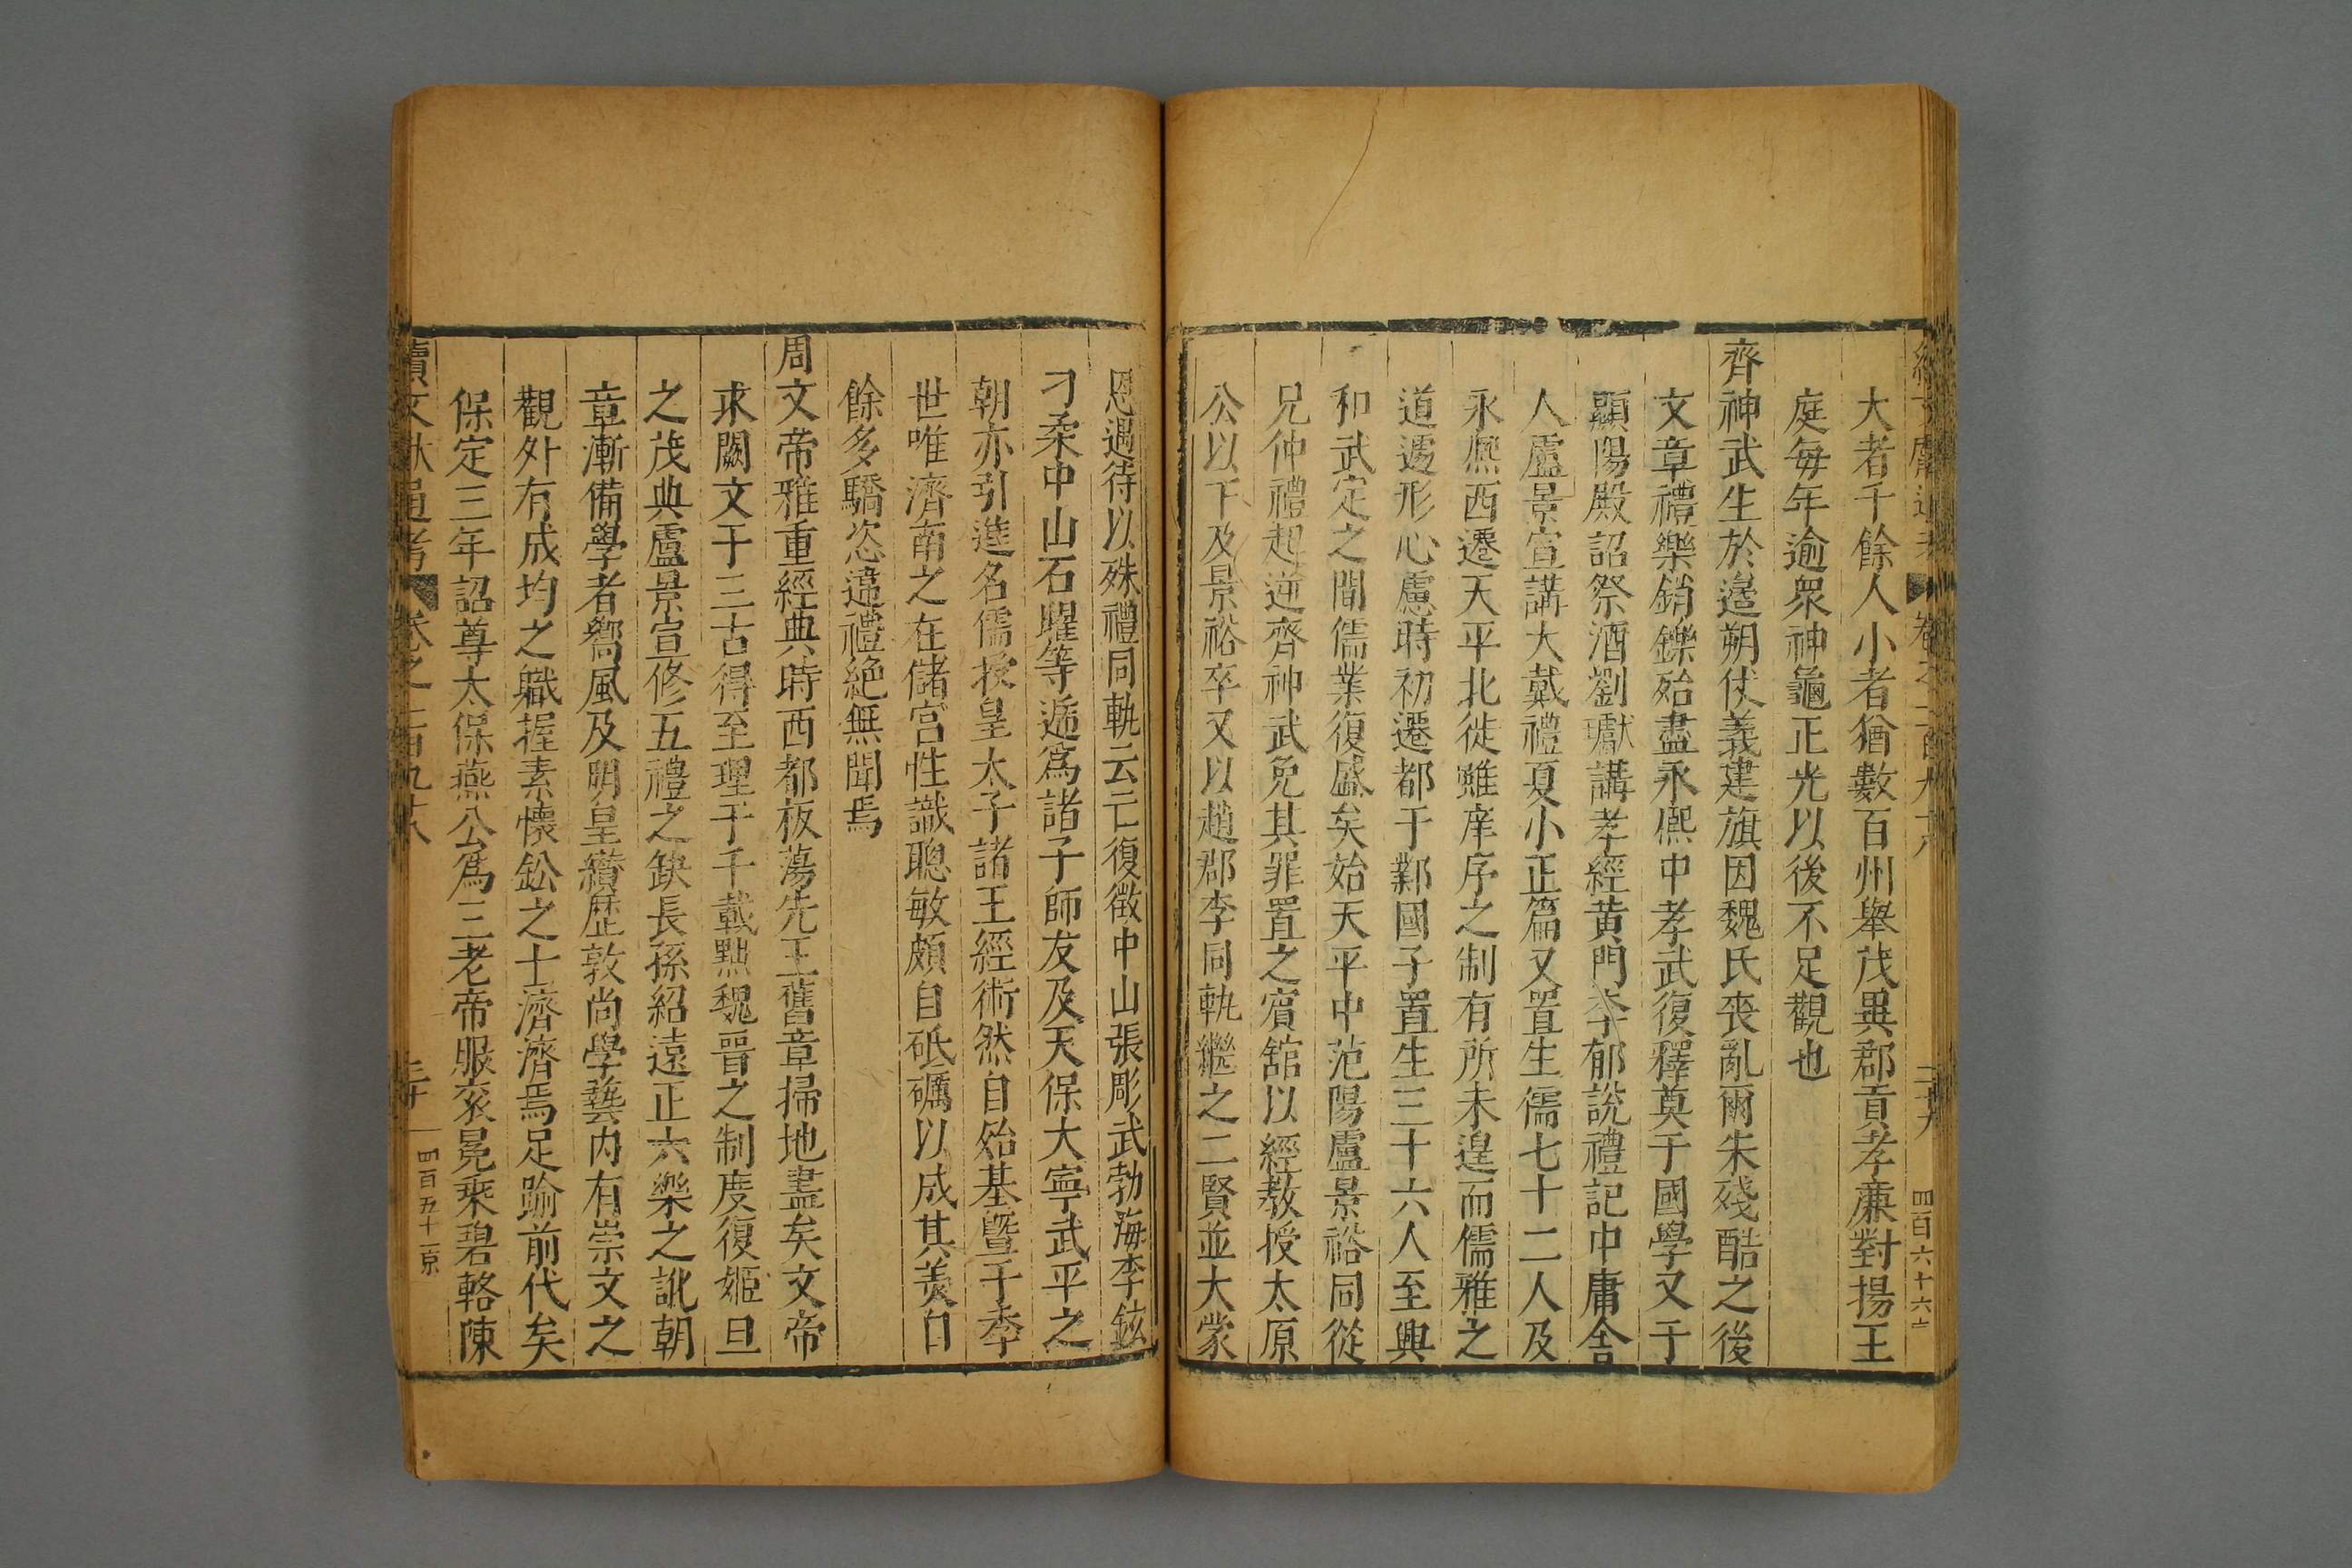 續文獻通考 卷之二百九十八 二十九 四百六十六
大者千餘人小者猶數百州舉茂異郡貢孝廉對揚王
庭每年逾衆神龜正光以後不足觀也
齊神武生於邉朔仗義建旗因魏氏丧亂爾朱殘酷之後
文章禮樂銷鑠殆盡永熈中孝武復釋奠于國學又于
顯陽殿詔祭酒劉瓛講孝經黄門李郁說禮記中庸舍
人盧景宣講大戴禮夏小正篇又置生儒七十二人及
永熈西遷天平北徙雖庠序之制有所未遑而儒雅之
道遽形心慮時初遷都于鄴國子置生三十六人至興
和武定之間儒業復盛矣始天平中范陽盧景裕同從
兄仲禮起逆齊神武免其罪置之賓舘以經教授太原
公以下及景裕卒又以趙郡李同軌繼之二賢並大蒙
恩遇待以殊禮同軌云亡復徵中山張彫武勃海李鉉
刁柔中山石曜等遞爲諸子師友及天保大寧武平之
朝亦引進名儒授皇太子諸王經術然自始基曁于季
世唯濟南之在儲宫性識聰敏頗自砥礪以成其美自
餘多驕恣違禮絶無聞焉
周文帝雅重經典時西都板蕩先王舊章掃地盡矣文帝
求闕文于三古得至理于千載黜魏晉之制度復姬旦
之茂典盧景宣修五禮之缺長孫紹遠正六樂之訛朝
章漸備學者嚮風及明皇纘歷敦尚學藝内有崇文之
觀外有成均之職握素懷鈆之士濟濟焉足踰前代矣
保定三年詔尊太保燕公爲三老帝服衮冕乘碧輅陳
續文獻通考 卷之二百九十八 三十 四百五十一京